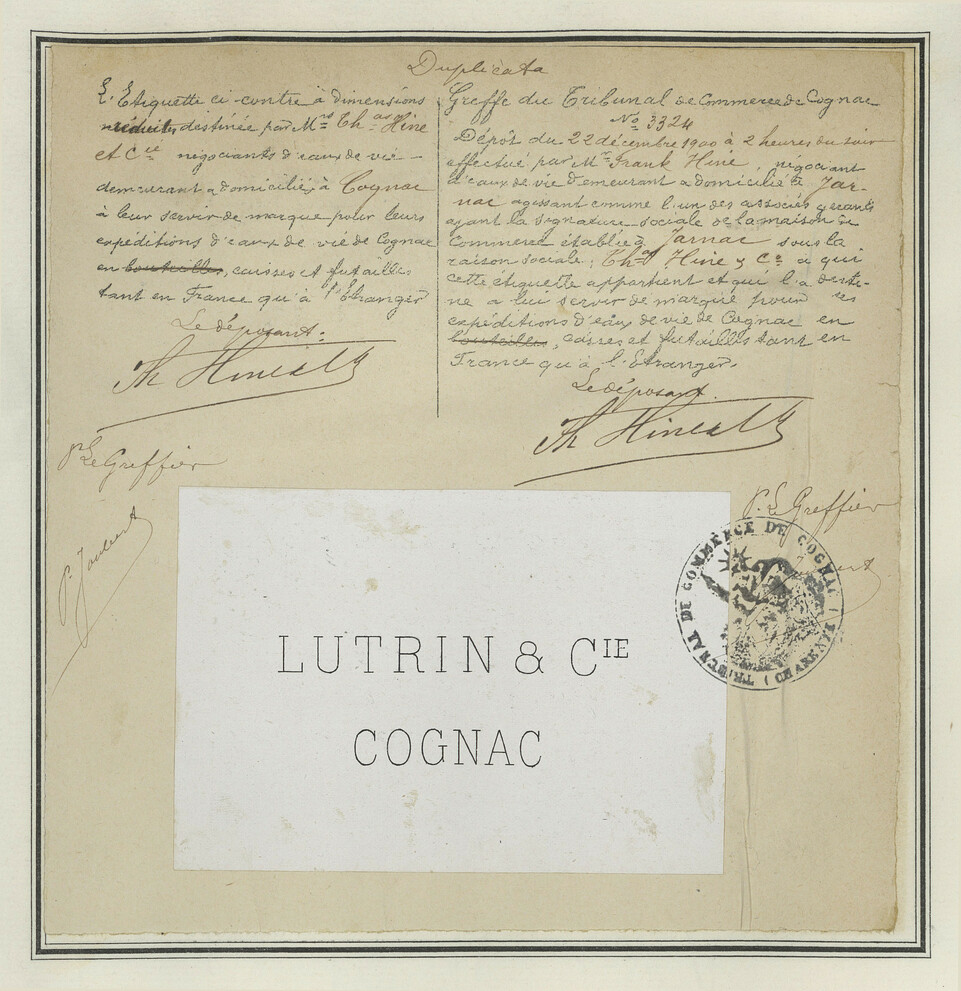 Duplicata
L'Etiquette ci-contre à dimensions
réduites destinée par Mrs Thas Hine
et Cie négociants d'eaux de vie -
demeurant & domiciliés à Cognac
à leur servir de marque pour leurs
expéditions d'eaux de vie de Cognac
en bouteilles, caisses et futailles
tant en France qu'à l'Etranger
Le déposant:
Th Hine & Co
pr Le Greffier
P. Joubert
Greffe du Tribunal de Commerce de Cognac
No 3324
Dépôt du 22 décembre 1900 à 2 heures du soir
effectué par Mr Frank Hine, négociant
d'eaux de vie demeurant & domicilié à Jar-
nac agissant comme l'un des associés gérants
ayant la signature sociale de la maison de
Commerce établie à Jarnac sous la
raison sociale: Thas Hine & Co à qui
cette étiquette appartient et qui l'a desti-
née à lui servir de marque pour ses
expéditions d'eaux de vie de Cognac en
bouteilles, caisses et futailles tant en
France qu'à l'Etranger.
Le déposant.
Th Hine & Co
P. Le Greffier
TRIBUNAL DE COMMERCE DE COGNAC (CHARENTE)
LUTRIN & CIE
COGNAC